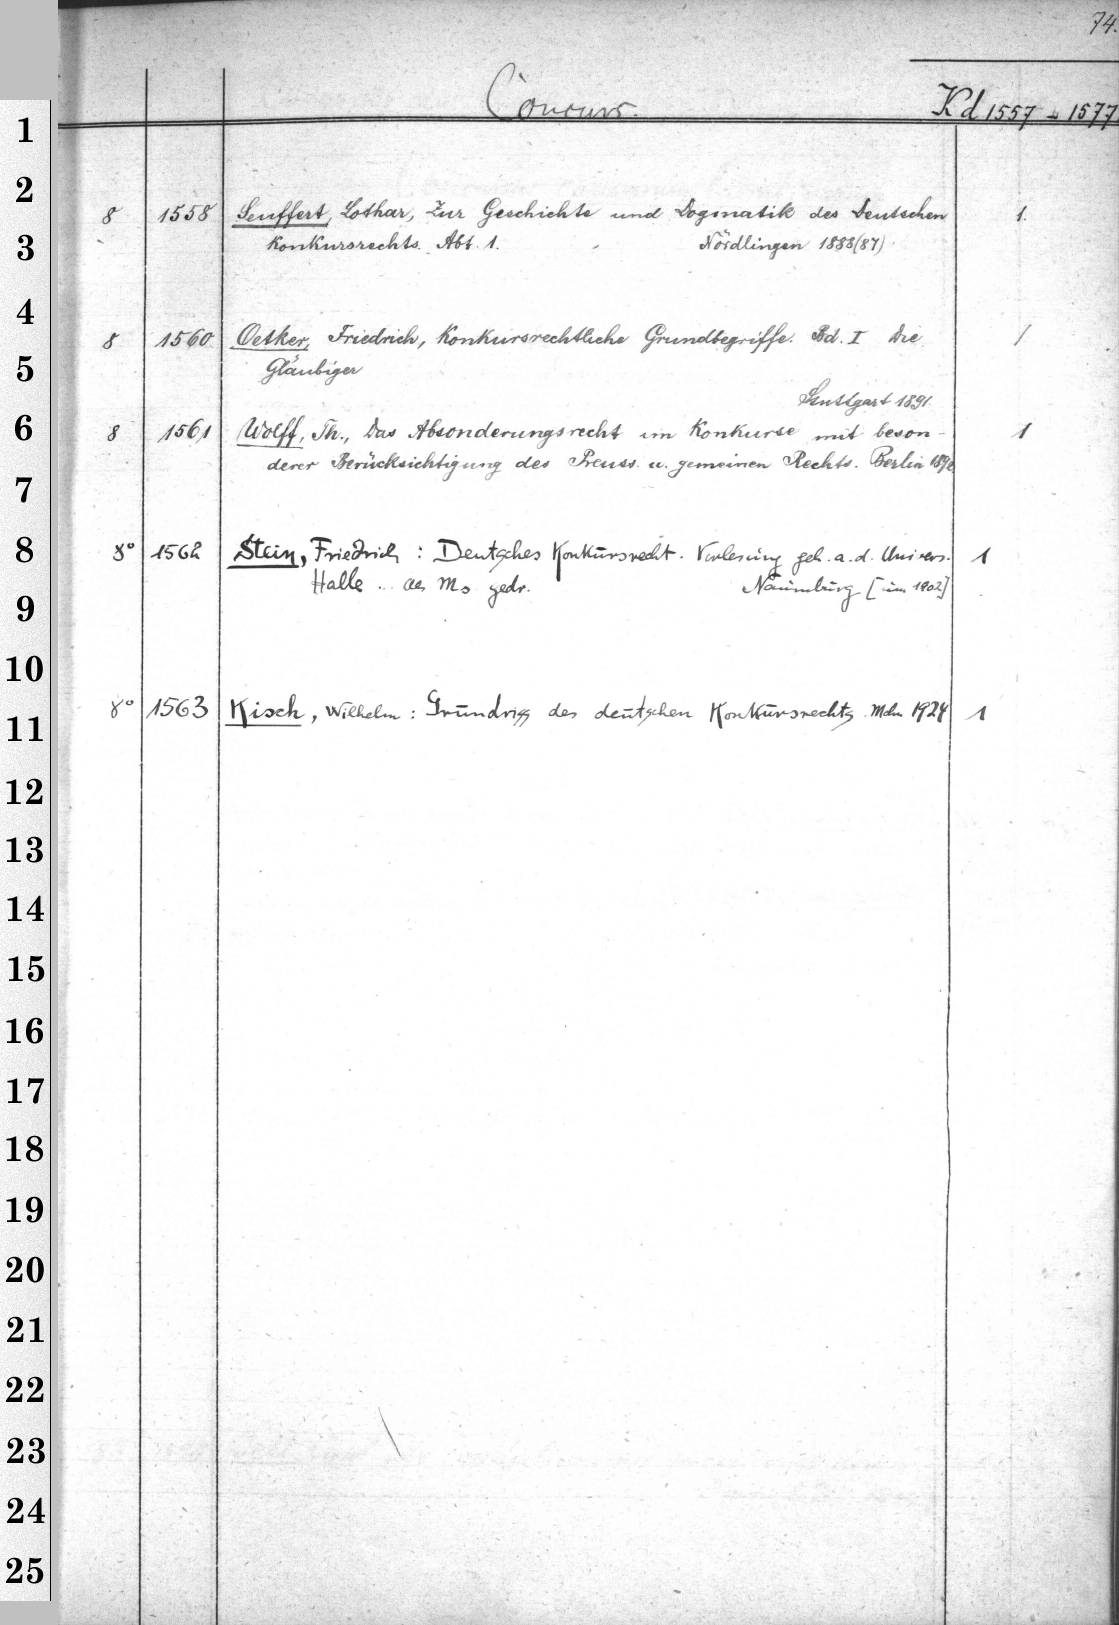 74.
Concurs.
Kd 1557 - 1577
1
2
8 1558 Seuffert, Lothar, Zur Geschichte und Dogmatik des Deutschen 1.
3
Konkursrechts. Abt. 1. Nördlingen 1888(87)
4
8 1560 Oetker, Friedrich, Konkursrechtliche Grundbegriffe. Bd. I Die /
5
Gläubiger
Stuttgart 1891.
6
8 1561 Wolff, Th., Das Absonderungsrecht im Konkurse mit beson- 1
derer Berücksichtigung des Preuss. u. gemeinen Rechts. Berlin
7
8
8° 1562 Stein, Friedrich : Deutsches Konkursrecht. Vorlesung geh. a. d. Univers. 1
Halle .. als Ms gedr. Naumburg [um 1902]
9
10
8° 1563 Kisch, Wilhelm : Grundriss des deutschen Konkursrechts. Mchn 1924 1
11
12
13
14
15
16
17
18
19
20
21
22
23
24
25